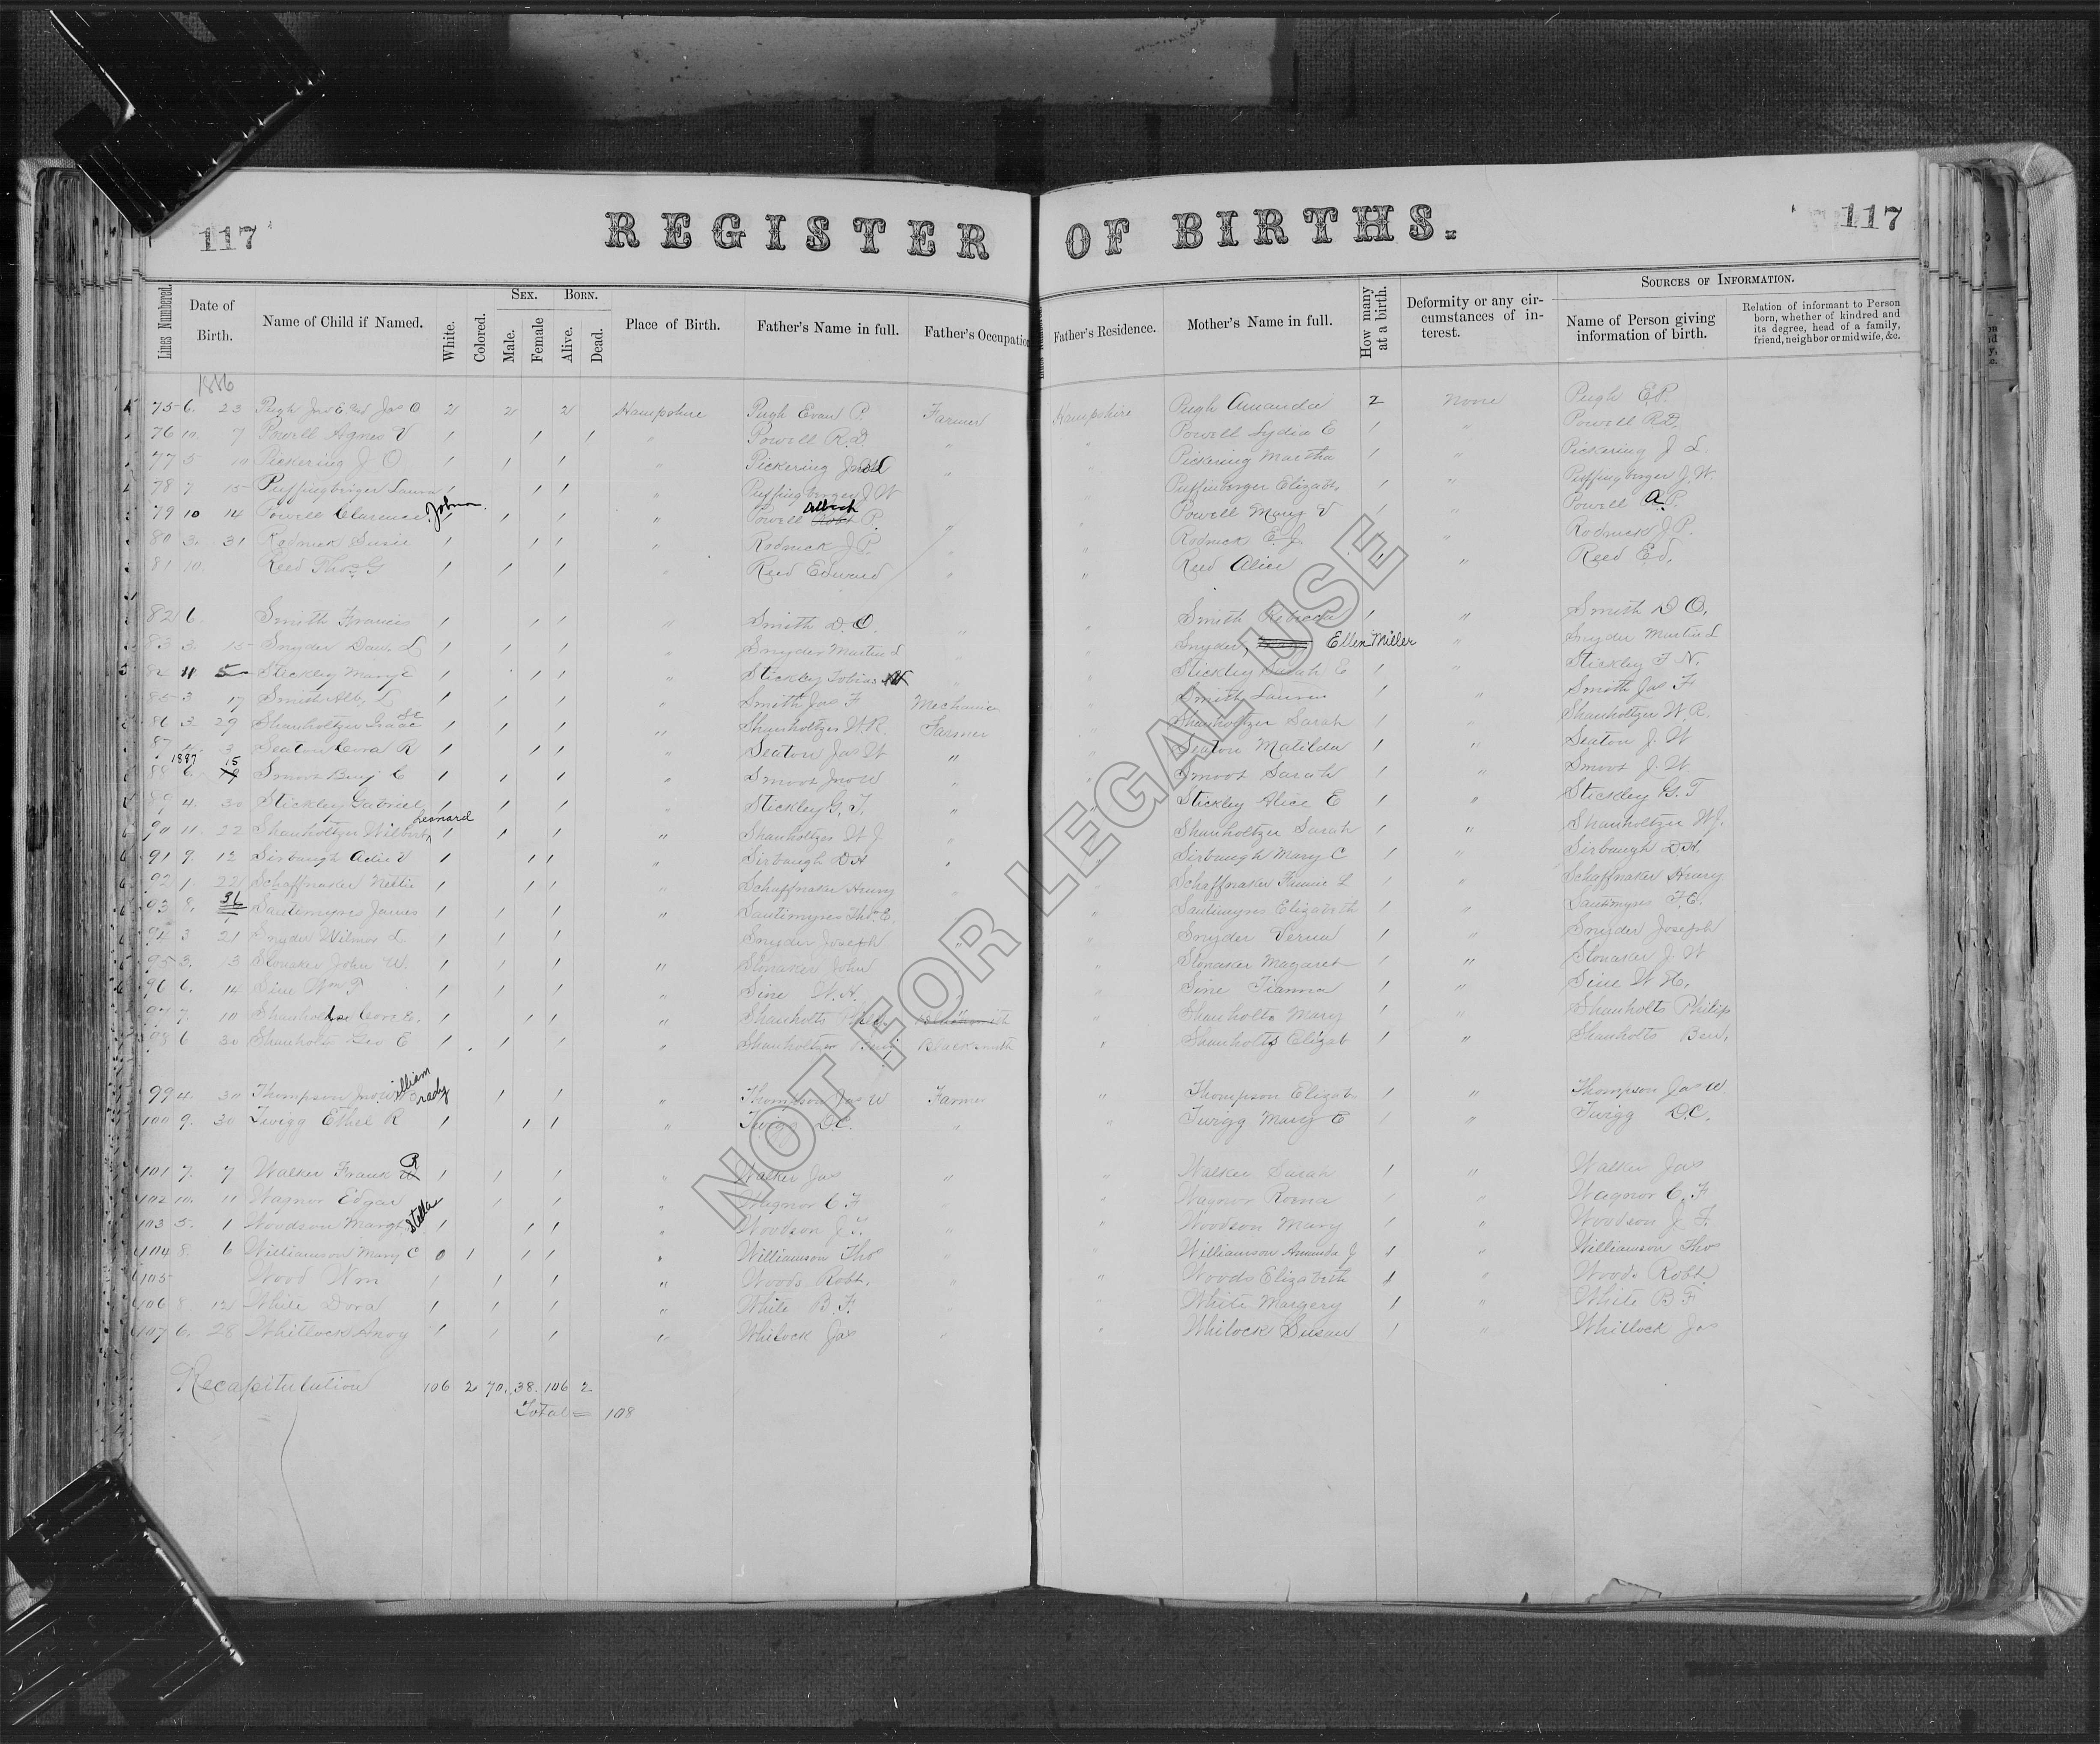 117 REGISTER OF BIRTHS. 117
Lines Numbered. Date of Birth. Name of Child if Named. White. Colored. Sex. Male. Female Born. Alive. Dead. Place of Birth. Father's Name in full. Father's Occupation Father's Residence. Mother's Name in full. How many at a birth. Deformity or any circumstances of interest. Sources of Information. Name of Person giving information of birth. Relation of informant to Person born, whether of kindred and its degree, head of a family, friend, neighbor or midwife, &c.
1886
75 6. 23 Pugh Jas O 2 2 2 Hampshire Pugh Evan P. Farmer Hampshire Pugh Amanda 2 None Pugh E.P.
76 10. 7 Powell Agnes V / / / " Powell R.D. " " Powell Lydia E / " Powell R.D.
77 5 19 Pickering J O / / / " Pickering " " Pickering Martha / " Pickering J L.
78 7 15 Puffingbriger Laura / / / " Puffingbrger J W " Puffinberger Elizabt. / " Puffingbrger J. W.
79 10 14 Powell Clarence John / / / " Powell Albert P. " " Powell Mary V / " Powell A. P.
80 3. 31 Rodnick Susie / / / " Rodnick J P. " " Rodnick E J. / " Rodnick J. P.
81 10. Reed Thos G / / / " Reed Edward " " Reed Alice / " Reed Ed.
82 6. Smith Francis / / / " Smith D. O. " " Smith Rebecca / " Smith D O.
83 3. 15 Snyder Dav. L / / / " Snyder Martin L " " Snyder, Ellen Miller " Snyder Martin L
11 5 Stickley Mary E / / / " Stickley Tobias " Stickley Sarah E / " Stickley T N.
85 3 17 Smith Alb. L / / / " Smith Jas F Mechanic Smith Laura / " Smith Jas F
86 3 29 Shanholtzer Isaac / / / " Shanholtzer W. R. Farmer Shanholtzer Sarah / " Shanholtzer W. R.
87 3 Seaton Cora R / / / " Seaton Jas W " Seaton Matilda / " Seaton J. W
1887
88 6. 15 Smoot Benj C / / / " Smoot Jno W " Smoot Sarah / " Smoot J. W
89 4. 30 Stickley Gabriel / / / " Stickley G. T. " " Stickley Alice E / " Stickley G. T
90 11. 22 Shanholtzer Wilbert Leonard / / / " Shanholtzer W J " Shanholtzer Sarah / " Shanholtzer W J.
91 9. 12 Sirbaugh Adie V / / / " Sirbaugh D H " Sirbaugh Mary C / " Sirbaugh D H.
92 1 22 Schaffnaker Nettie / / / " Schaffnaker Henry " " Schaffnaker Fannie L / " Schaffnaker Henry
93 8. Sautimyres James / / / " Sautimyres Thos. E. " Sautimyres Elizabeth / " Sautimyres T. E.
94 3 21 Snyder Wilmor L. / / / Snyder Joseph " " Snyder Verna / " Snyder Joseph
95 3. 13 Slonaker John W. / / / " Slonaker John Slonaker Magaret / " Slonaker J. W
96 6. 14 Sine Wm F / / / " Sine W. H. Sine Tianna / " Sine W H.
97 7. 10 Cora E. / / / " Shanholts Phil. Blacksmith " Shanholts Mary / " Shanholts Philip
98 6 30 Shanholts Geo E / / / " Shanholtzer Benj Blacksmith " Shanholts Elizab / " Shanholts Ben.
99 4. 30 Thompson Jno William Grady / / " Thompson Jas W Farmer " Thompson Elizab / " Thompson Jas W
100 9. 30 Twigg Ethel R / / / " Twigg D. C. " " Twigg Mary E / " Twigg D. C.
101 7. 7 Walker Frank R / / / " Walker Jas " " Walker Sarah / " Walker Jas
102 10. 11 Wagnor Edgar / / " Wagnor C F " " Wagnor Roena / " Wagnor C. F
103 5. 1 Woodson Margt. Stella / / / " Woodson J F. " " Woodson Mary / " Woodson J. F.
104 8. 6 Williamson Mary C 0 1 / / " Williamson Thos " Williamson Amanda J / " Williamson Thos
105 Wood Wm / / / " Woods Robt. " " Woods Elizabeth / " Woods Robt
106 8. 12 White Dora / / / " White B. F. " " White Margery / " White B F
107 6. 28 Whitlock / / / " Whitlock Jas " " Whitlock Susan / " Whitlock Jas
Recapitulation 106 2 70. 38. 106 2
Total = 108
NOT FOR LEGAL USE